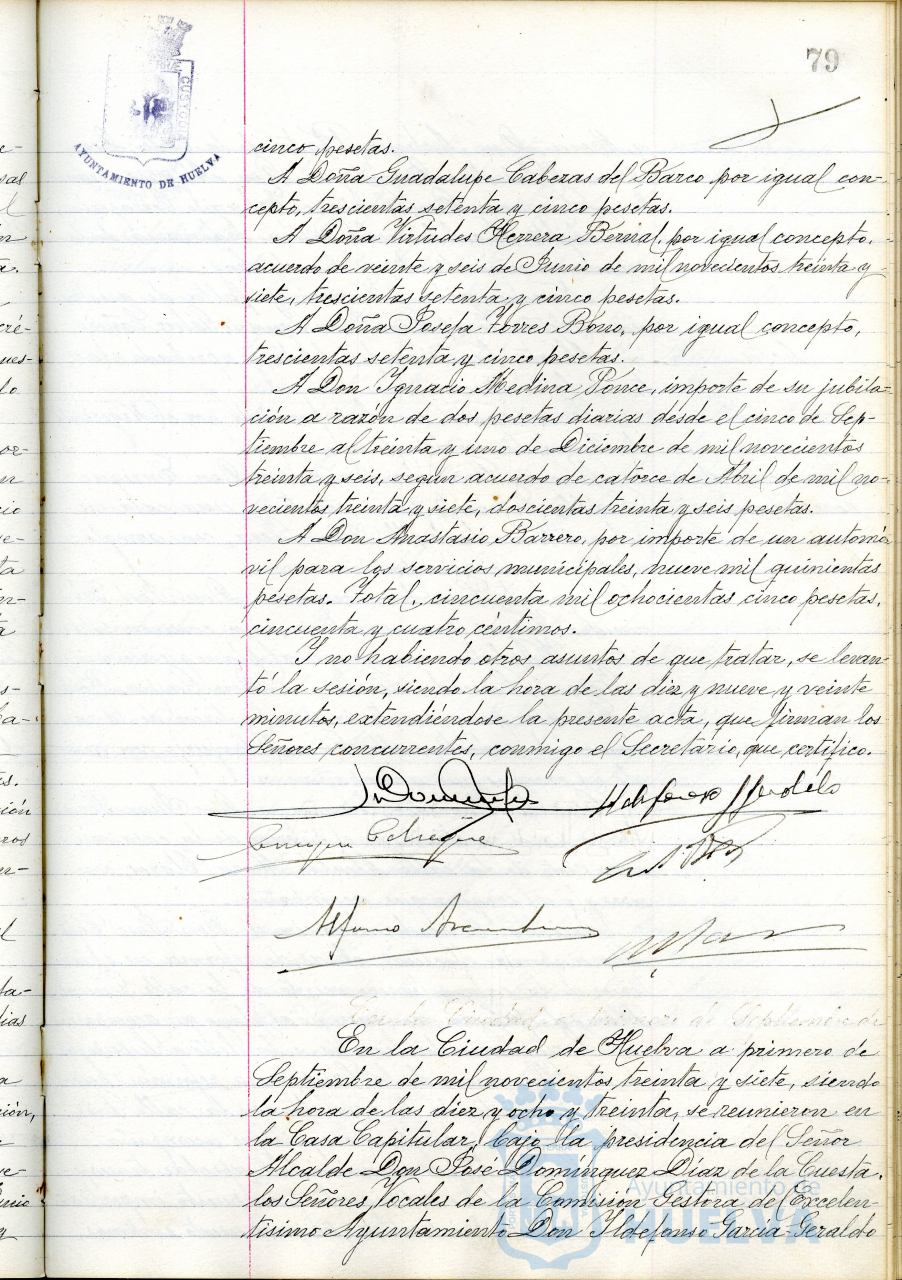 79
AYUNTAMIENTO DE HUELVA
cinco pesetas.
A Doña Guadalupe Cabezas del Barco por igual con-
cepto, trescientas setenta y cinco pesetas.
A Doña Virtudes Herrera Bernal, por igual concepto,
acuerdo de veinte y seis de Junio de mil novecientos treinta y
siete, trescientas setenta y cinco pesetas.
A Doña Josefa Torres Bono, por igual concepto,
trescientas setenta y cinco pesetas.
A Don Ygnacio Medina Ponce, importe de su jubila-
ción a razón de dos pesetas diarias desde el cinco de Sep-
tiembre al treinta y uno de Diciembre de mil novecientos
treinta y seis, segun acuerdo de catorce de Abril de mil no-
vecientos treinta y siete, doscientas treinta y seis pesetas.
A Don Anastasio Barrero, por importe de un automó-
vil para los servicios municipales, nueve mil quinientas
pesetas. Total, cincuenta mil ochocientas cinco pesetas,
cincuenta y cuatro céntimos.
Y no habiendo otros asuntos de que tratar, se levan-
tó la sesión, siendo la hora de las diez y nueve y veinte
minutos, extendiéndose la presente acta, que firman los
Señores concurrentes, conmigo el Secretario, que certifico.
En la Ciudad a primero de Septiembre de
En la Ciudad de Huelva a primero de
Septiembre de mil novecientos treinta y siete, siendo
la hora de las diez y ocho y treinta, se reunieron en
la Casa Capitular, bajo la presidencia del Señor
Alcalde Don José Domínguez Díaz de la Cuesta,
los Señores Vocales de la Comisión Gestora del Excelen-
tísimo Ayuntamiento Don Yldefonso García-Geraldo
Ayuntamiento de
HUELVA